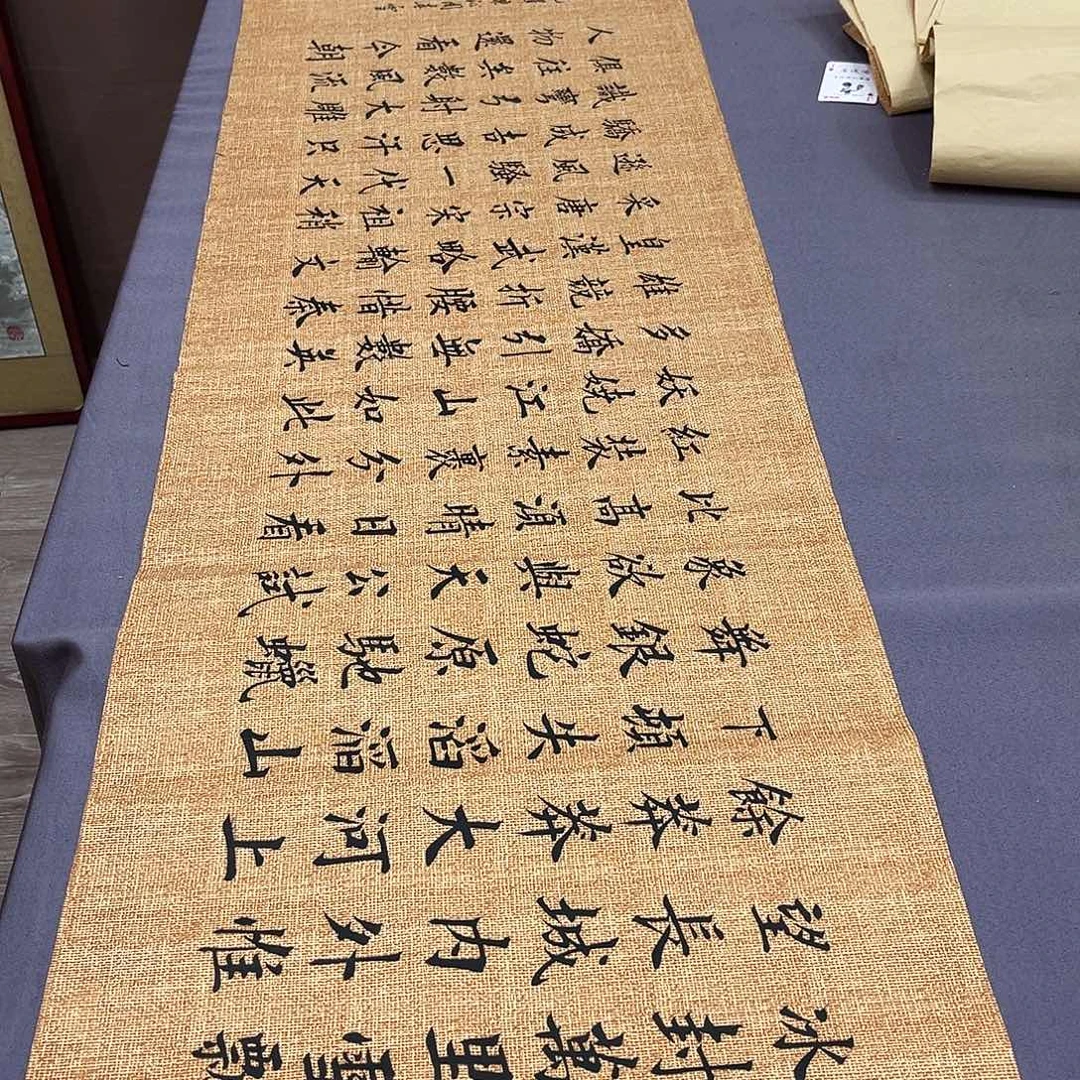 冰封萬里雪飄
望長城內外惟
餘莽莽大河上
下頓失滔滔山
舞銀蛇原馳蠟
象欲與天公試
比高須晴日看
紅裝素裹分外
妖嬈江山如此
多嬌引無數英
雄競折腰惜秦
皇漢武略輸文
采唐宗宋祖稍
遜風騷一代天
驕成吉思汗只
識彎弓射大雕
俱往矣數風流
人物還看今朝